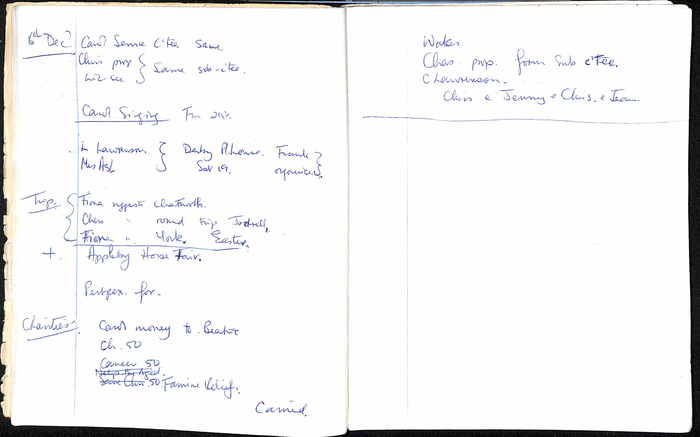 6th Dec?
Carol Service C'tee Same.
Chris prop
Liz-sec } Same sub-c'tee.
Carol Singing Fri 20th.
Mrs Ash { Derby P.House. Frank }
Sat 19. organises
Trips { Fiona suggests Chatsworth.
Chris " round trip
Fiona " York. Easter.
+ Appleby Horse Fair.
Perspex. for.
Charities:- Carol money to Beatrice
Ch. 50
Cancer 50
Help the Aged.
Save Chil. 50 Famine Relief.
Carried.
Chas. prop. form Sub c'tee.
C Lawrenson.
Chris & Jenny & Chris. & Jean.